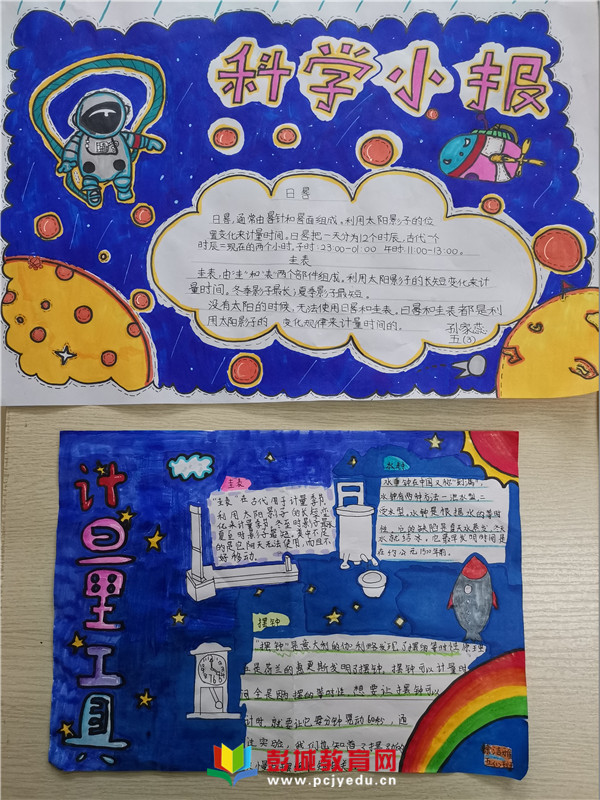 科学小报
日晷
日晷,通常由晷针和晷面组成。利用太阳影子的位
置变化来计量时间。日晷把一天分为12个时辰,古代一个
时辰=现在的两个小时。子时:23:00-01:00 午时:11:00-13:00。
圭表
圭表,由"圭"和"表"两个部件组成。利用太阳影子的长短变化来计
量时间。冬季影子最长;夏季影子最短。
没有太阳的时候,无法使用日晷和圭表。日晷和圭表都是利
用太阳影子的 变化规律来计量时间的。
孔家蕊
五(3)
计量工具
圭表
"圭表"在古代用于计量季节
利用太阳影子的长短变
化来计量季节,冬至时影子最长
夏至时影子最短。美中不足
的是它阴天无法使用,而且不
好移动。
水钟
水钟在中国又称"刻漏",
水钟有两种方法一泄水型,二
受水型,水钟是根据水的等时
性,
在公元1500年前。
摆钟
"摆钟"是意大利的伽利略发现了摆的等时性原理
是荷兰的惠更斯发明了摆钟,摆钟可以计量时
间全是因为摆的等时性,想要让摆钟可以
计时,就要让它每分钟摆动60秒,通
过实验,我们也知道了摆
彭城教育网
www.pcjyedu.cn